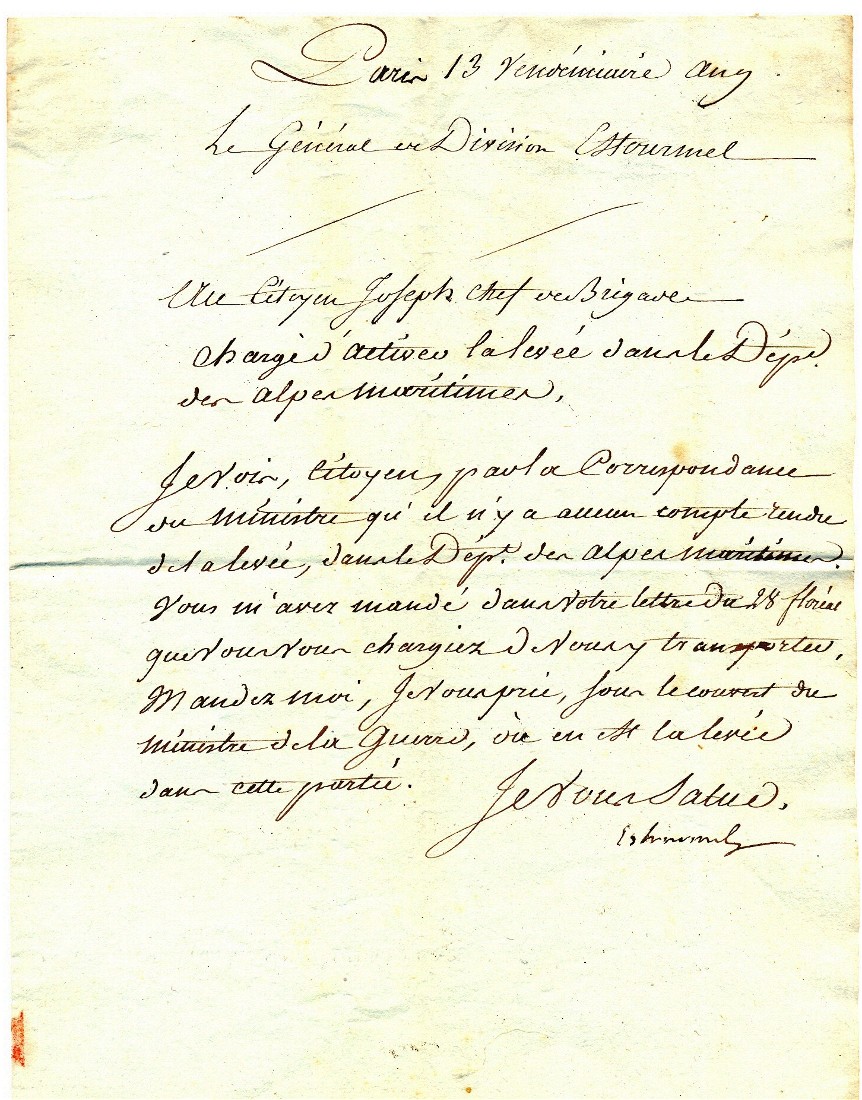 Paris 13 Vendémiaire an 9
Le Général de Division Estourmel
Au Citoyen Joseph chef de Brigade
chargé d'activer la levée dans le Dépt.
des alpes maritimes.
Je vois, Citoyen, par la Correspondance
du ministre qu'il n'y a aucun compte rendu
de la levée, dans le Dépt. des alpes maritimes.
Vous m'avez mandé dans votre lettre du 28 floréal
que vous vous chargiez de vous y transporter,
Mandez moi, Je vous prie, sous le couvert du
ministre de la Guerre, où en est la levée
dans cette partie.
Je vous salue,
Estourmel